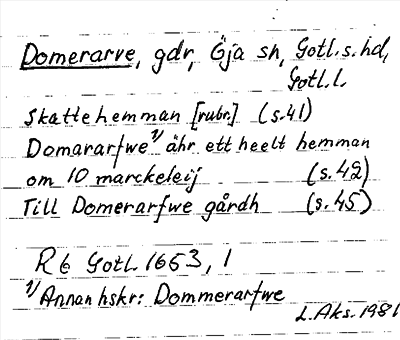 Domerarve, gdr, Öja sn, Gotl. s. hd,
Gotl. l.
Skattehemman [rubr.] (s. 41)
Domararfwe 1) ähr ett heelt hemman
om 10 marckeleij (s. 42)
Till Domerarfwe gårdh (s. 45)
R 6 Gotl. 1653, 1
1) Annan hskr: Dommerarfwe
L. Aks. 1981